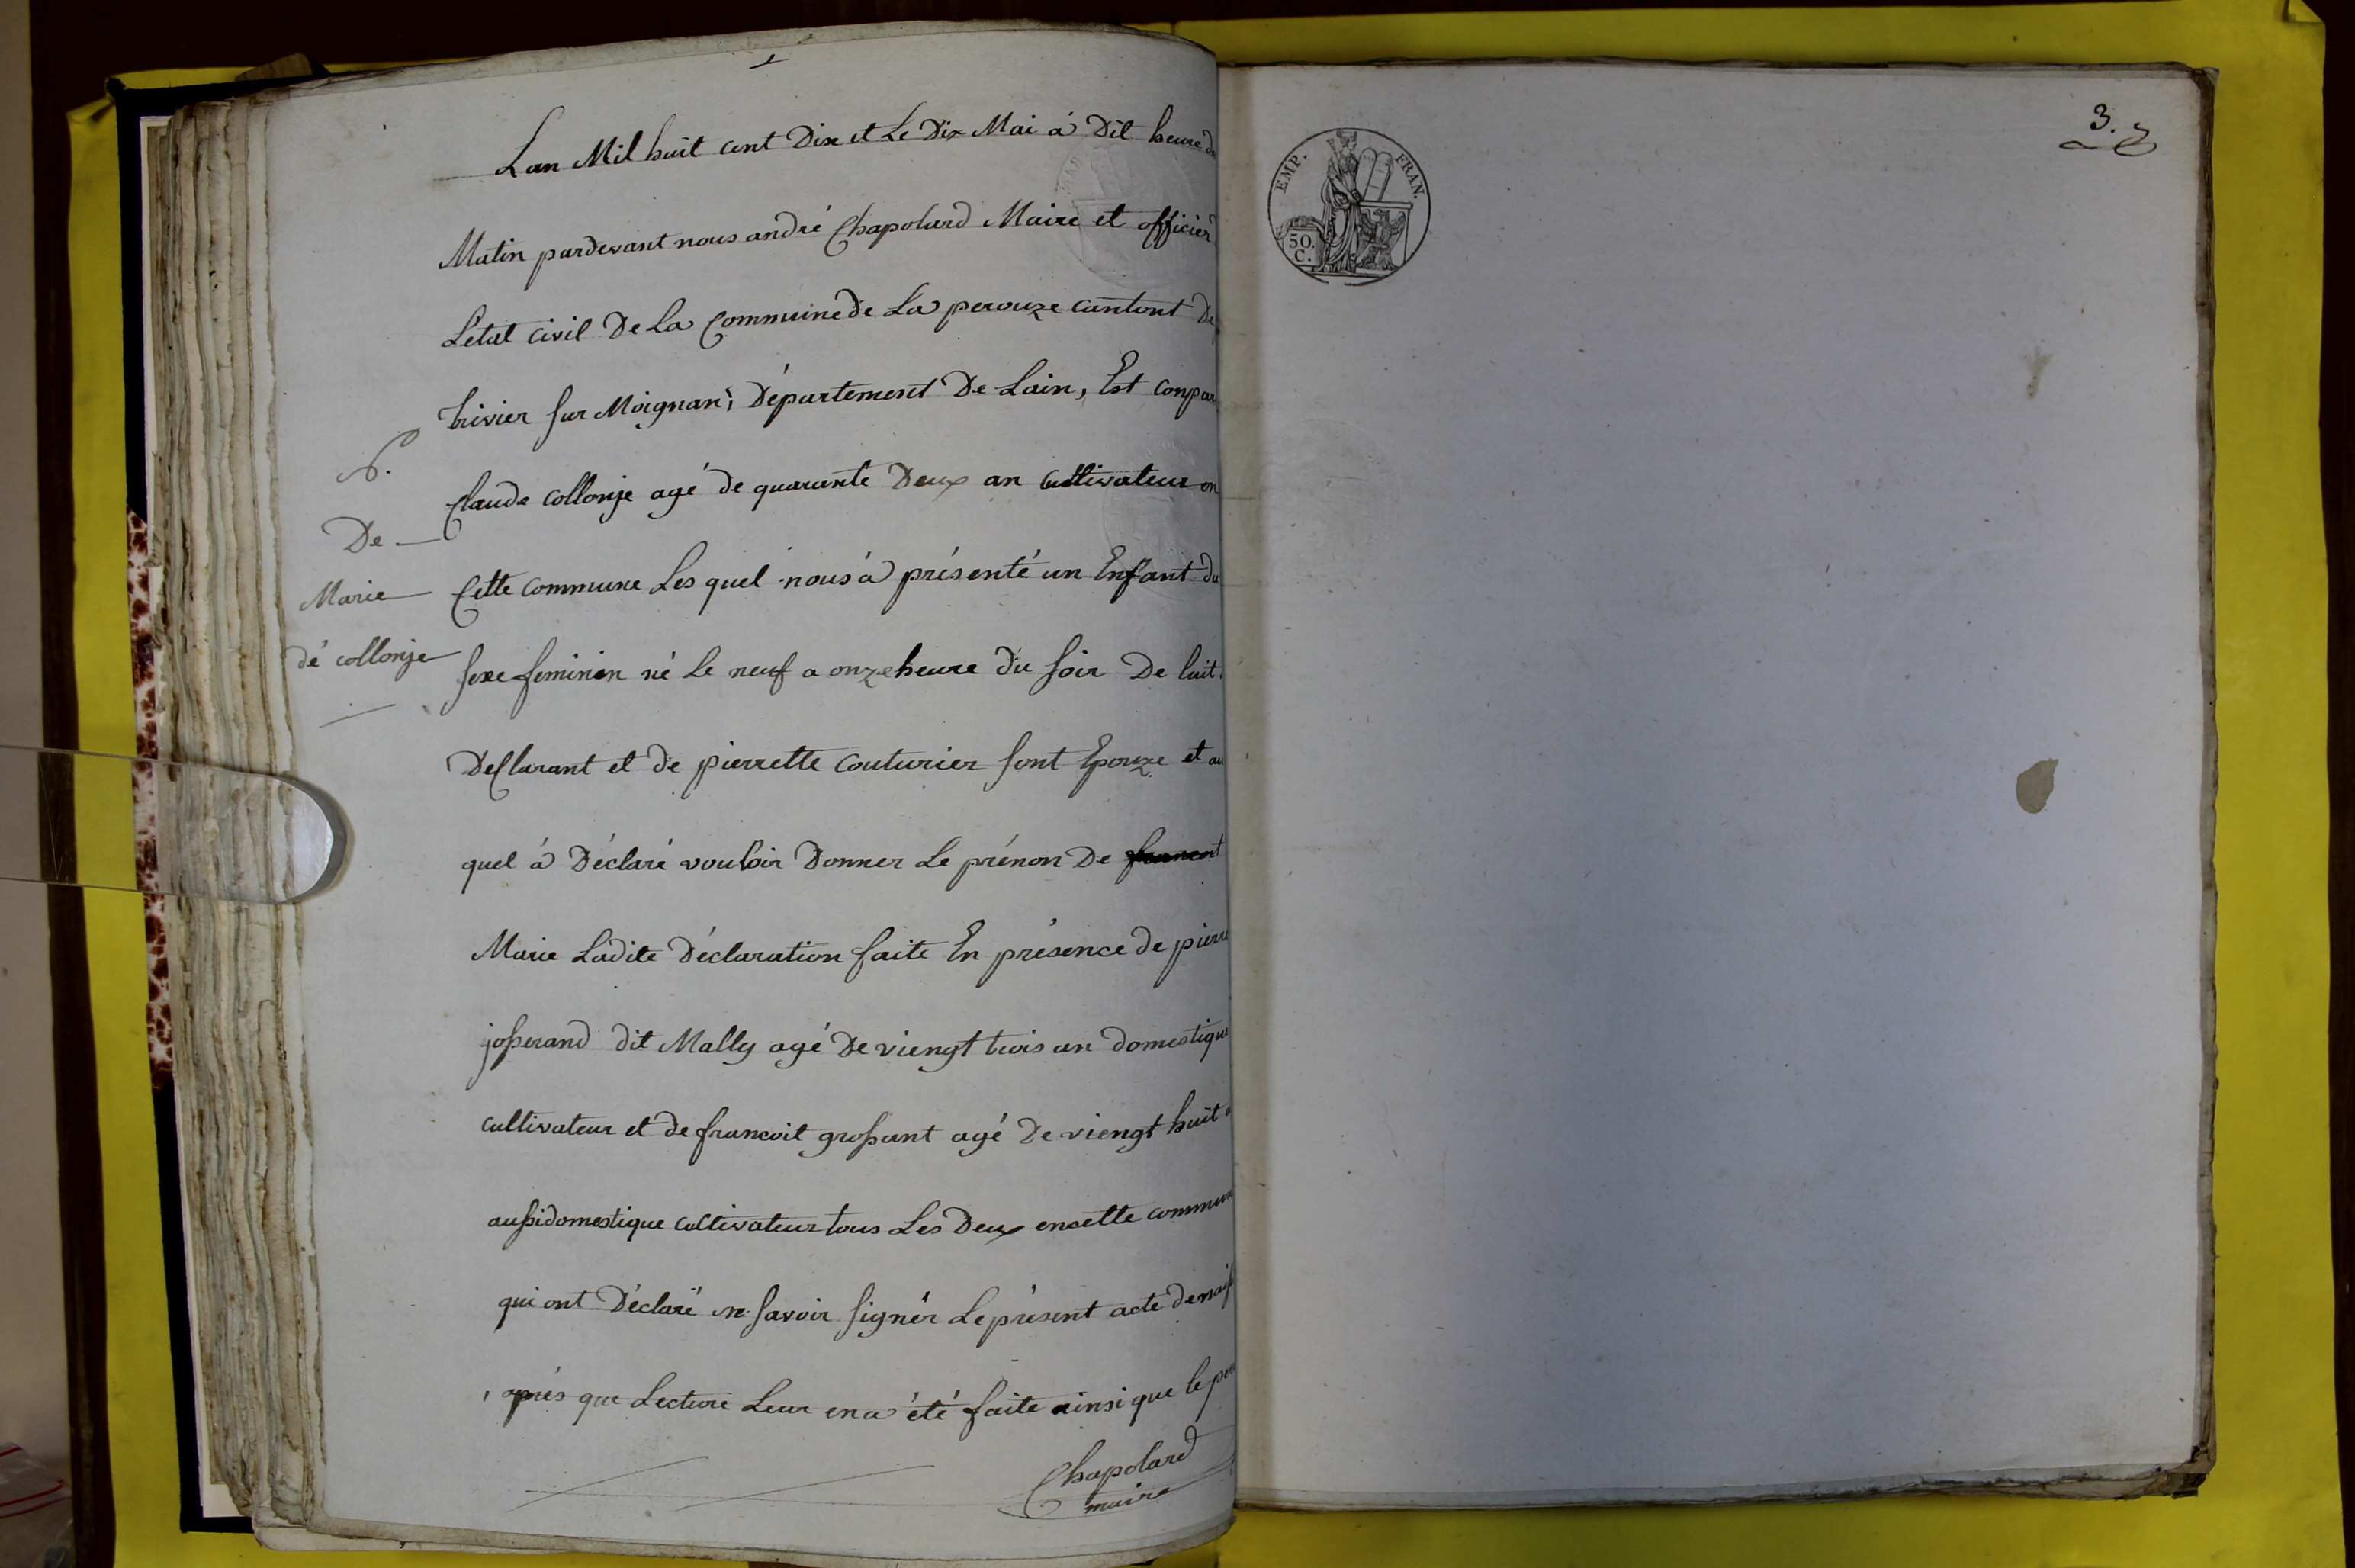 Lan Mil huit cent Dix et Le Dix Mai á Dit heure du
Matin pardevant nous andré Chapolard Maire et officier
Létat civil De La Commuine de La perouze cantont De
trivier sur Moignan, Département De Lain, Est conpar
N.
Claude collonje agé de quarante Deux an cultivateur en
De
Cette commune Les quel nous á présenté un Enfant du
Marie
sexe feminin né le neuf a onze heure du soir De luit
dé collonje
Desclarant et de pierrette couturier sont Epouze et au
quel á Déclaré vouloir Donner Le prénon De francoit
Marie Ladite Déclaration faite En présence de pierre
josserand dit Mally agé De viengt trois an domestique
cultivateur et de francoit grossant agé De viengt huit a
aussi domestique cultivateur tous Les Deux en cette commune
qui ont Déclaré ne savoir signér Le présent acte de naiss
aprés que Lecture Leur en a été faite ainsi que le per
Chapolard
maire
3.
EMP. FRAN.
50.
C.